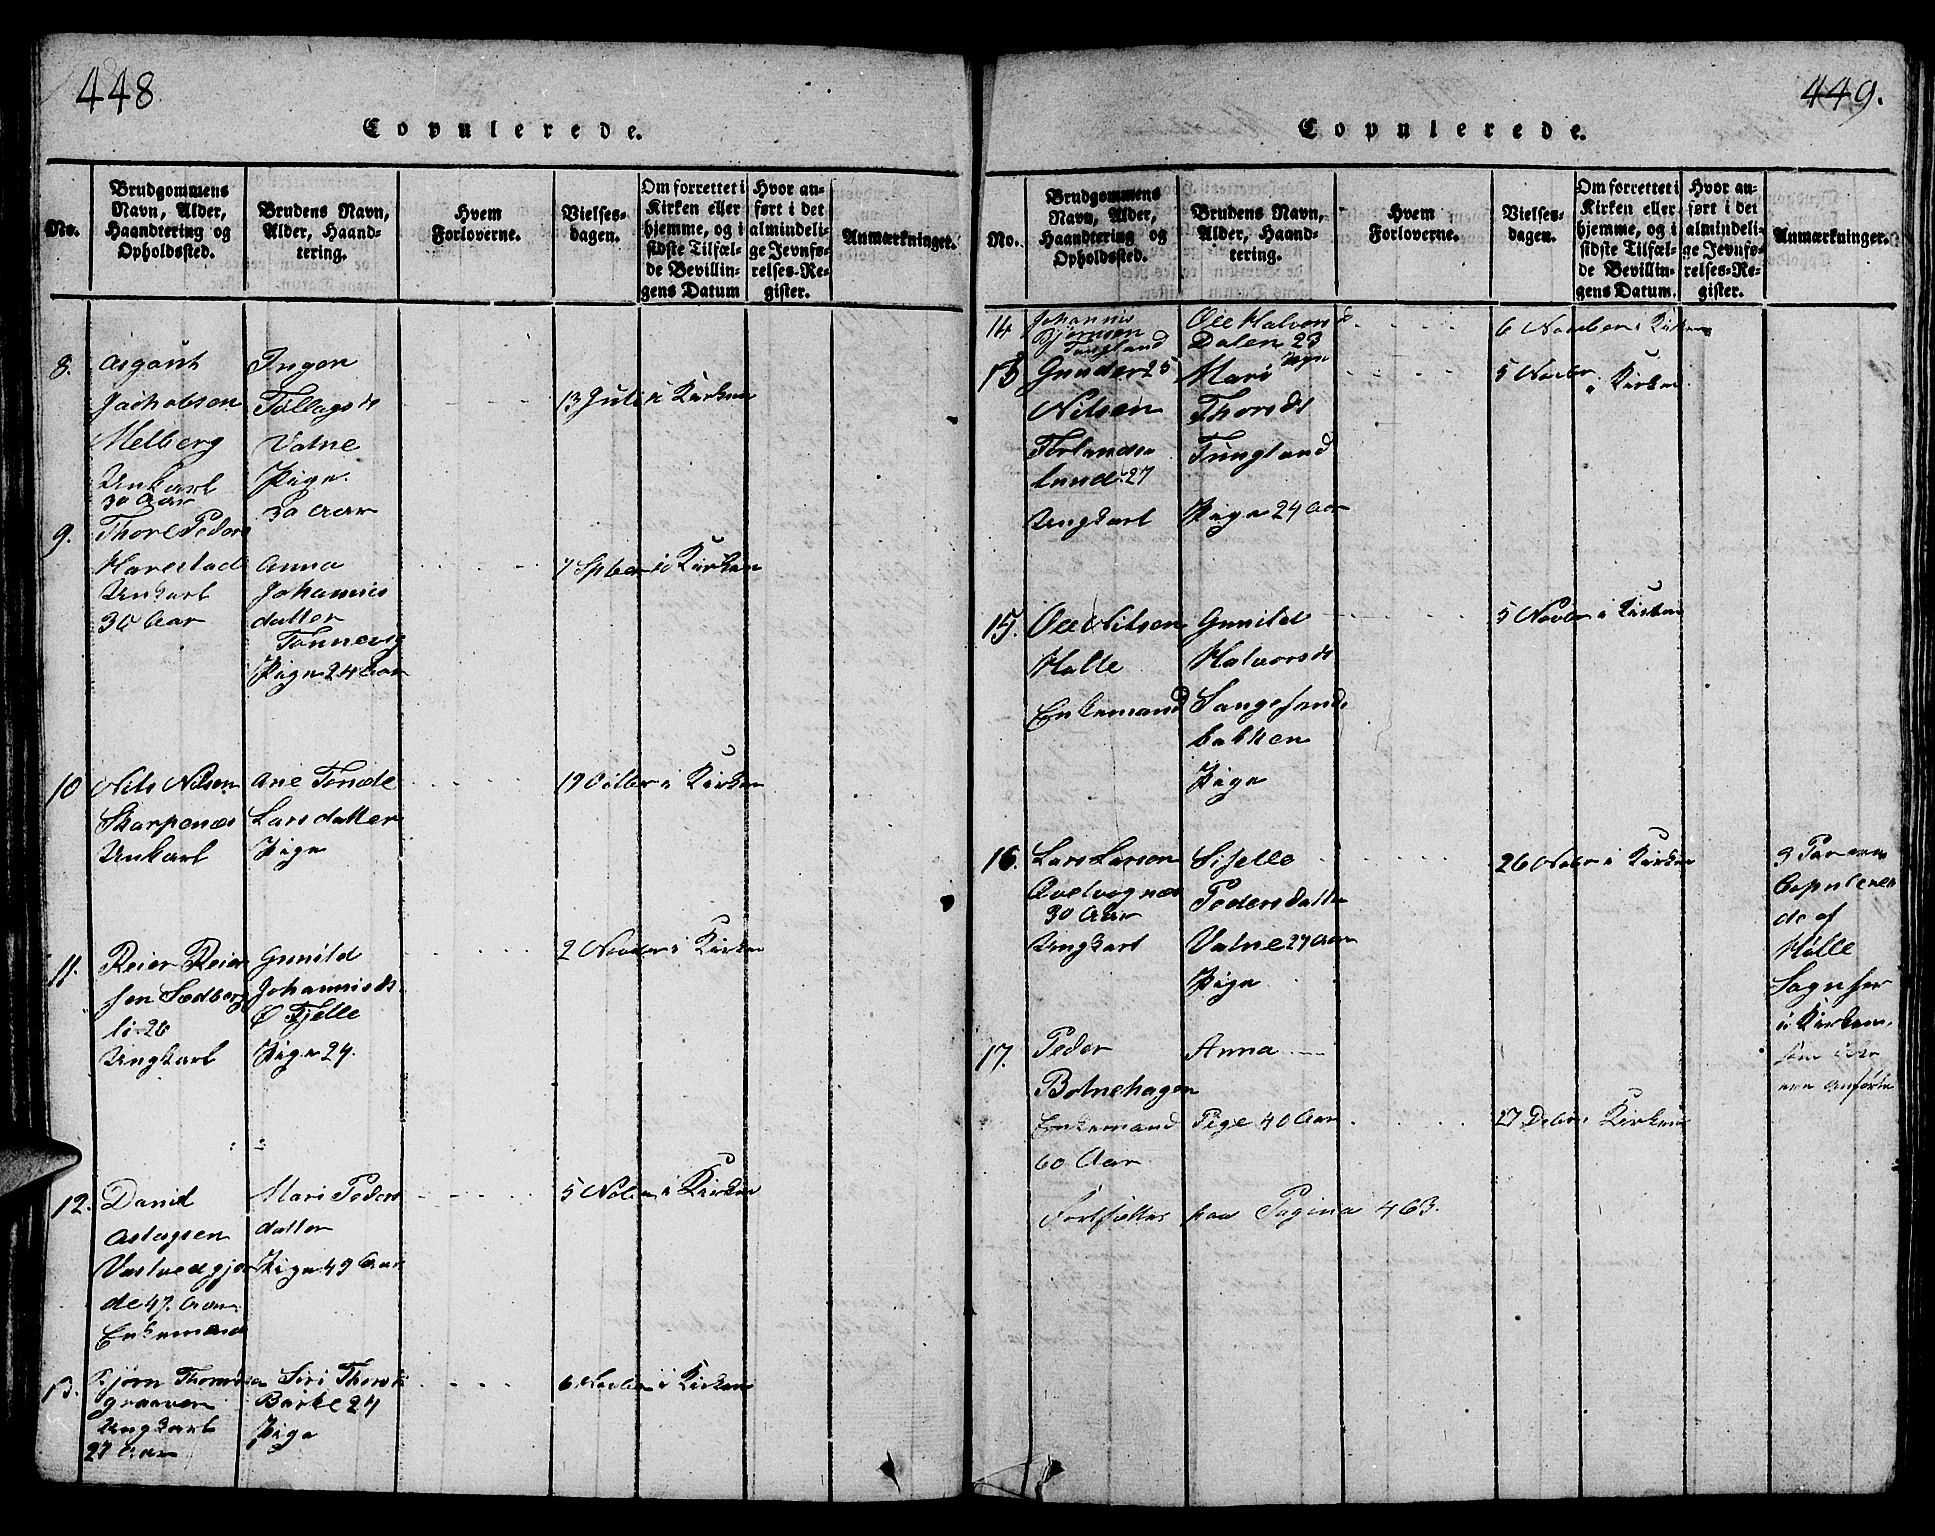 448
Copulerede.
No.
Brudgommens
Navn, Alder,
Haandtering og
Opholdssted.
Brudens Navn,
Alder, Haand-
tering.
Hvem
Forloverne.
Vielses-
dagen.
Om forrettet i
Kirken eller
hjemme, og i
sidste Tilfæl-
de Bevillin-
gens Datum
Hvor an-
ført i det
almindeli-
ge Jevnfø-
relses-Re-
gister.
Anmærkninger.
8.
Asgaut
Jachobsen
Melberg
Unkarl
30 Aar
Inger
Tollagsdt
Valne
Pige
30 Aar
13 Juli i Kirken
9.
Thore Peders
Harestad
Unkarl
30 Aar
Anna
Johannis
datter
Tonnevig
Pige 24 Aar
7 Sptber i Kirken
10
Nils Nilsen
Skarpenæs
Unkarl
Ane Tonette
Larsdatter
Pige
19 Octbr i Kirken
11.
Reier Reier
sen Sedberg
li 26
Ungkarl
Gunild
Johannisdt
Fjelle
Pige 24.
2 Novber i Kirken
12.
Daniel
Aslagsen
Vastvedgjer
de 47. Aar
Enkemand
Mari Peders
datter
Pige 49 Aar
5 Nober i Kirken
13.
Bjørn Thormodsen
graaven
Ungkarl
27 Aar
Siri Thorsdt
Barke 24
Pige
6 Novber i Kirken
449.
Copulerede.
No.
Brudgommens
Navn, Alder,
Haandtering og
Opholdssted.
Brudens Navn,
Alder, Haand-
tering.
Hvem
Forloverne.
Vielses-
dagen.
Om forrettet i
Kirken eller
hjemme, og i
sidste Tilfæl-
de Bevillin-
gens Datum.
Hvor an-
ført i det
almindeli-
ge Jevnfø-
relses-Re-
gister.
Anmærkninger.
14
Johannis
Bjørnsen
Tungland
25
Halvorsd
Dalen 23
Pige
6 Novber i Kirken
Gunder
Nilsen
Forlands
Lund 27
Ungkarl
Mari
Thorsdt
Tungland
Pige 24 Aar
5 Novbr i Kirken
15.
Ole Nilsen
Halle
Enkemand
Gunild
Halvorsdt
Sangesand
bakken
Pige
5 Novbr i Kirken
16.
Lars Larsen
30 Aar
Ungkarl
Siselle
Pedersdatter
Valne 27 Aar
Pige
26 Nobr i Kirken
3 Par ere
Copulere
de af
Hølle
Sogn her
i Kirken,
som
ere anførte
17.
Peder
Botnehagen
Enkemand
60 Aar
Anna
Pige 40 Aar
27 Debr i Kirken
Fortsættes paa Pagina 463.